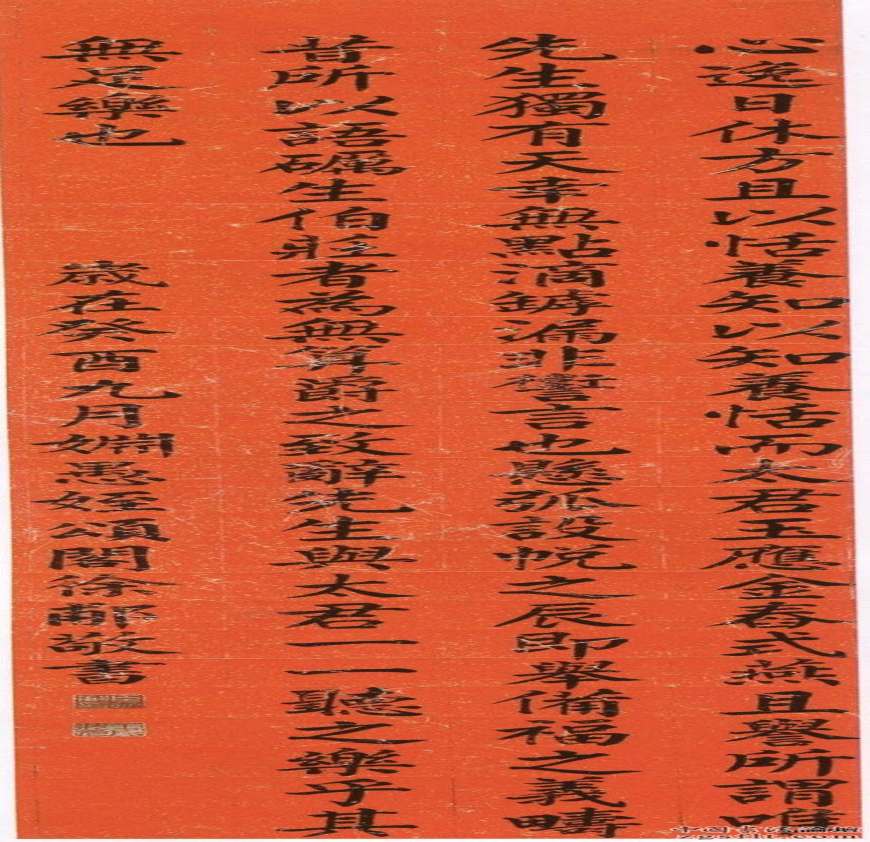 心逸日休方且以恬養知以知養恬而太君玉應金舂式燕且譽所謂唯
先生獨有天幸無點滴罅漏非讆言也懸弧設帨之辰即舉備福之義疇
昔所以語礪生伯莊者為無算爵之致辭先生與太君一一聽之樂乎其
無足樂也
歲在癸酉九月姻愚姪頌閣徐郙敬書